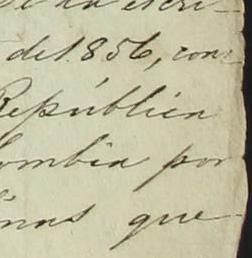 de la escri-
de 1.856, con-
República
ombia por
inas que